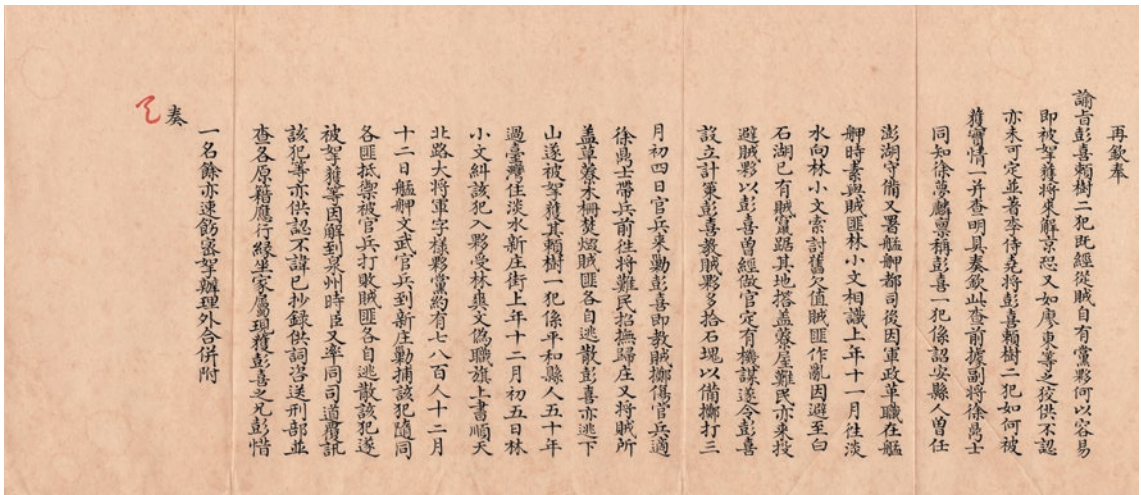 再欽奉
諭旨彭喜賴樹二犯既經從賊自有黨夥何以容易
即被拏獲將來解京恐又如廖東等之狡供不認
亦未可定並著李侍堯將彭喜賴樹二犯如何被
獲實情一并查明具奏欽此查前據副將徐鼎士
同知徐夢麟稟稱彭喜一犯係詔安縣人曾任
澎湖守備又署艋舺都司後因軍政革職在艋
舺時素與賊匪林小文相識上年十一月往淡
水向林小文索討舊欠值賊匪作亂因避至白
石湖已有賊竄踞其地搭盖藔屋難民亦來投
避賊夥以彭喜曾經做官定有機謀遂令彭喜
設立計策彭喜教賊夥多拾石塊以備擲打三
月初四日官兵來勦彭喜即教賊擲傷官兵適
徐鼎士帶兵前往將難民招撫歸庄又將賊所
盖草藔木柵焚燬賊匪各自逃散彭喜亦逃下
山遂被拏獲其賴樹一犯係平和縣人五十年
過臺灣住淡水新庄街上年十二月初五日林
小文糾該犯入夥受林爽文偽職旗上書順天
北路大將軍字樣夥黨約有七八百人十二月
十二日艋舺文武官兵到新庄勦捕該犯隨同
各匪抵禦被官兵打敗賊匪各自逃散該犯遂
被拏獲等因解到泉州時臣又率同司道覆訊
該犯等亦供認不諱已抄錄供詞咨送刑部並
查各原籍應行緣坐家屬現獲彭喜之兄彭惜
一名餘亦速飭密拏辦理外合併附
奏